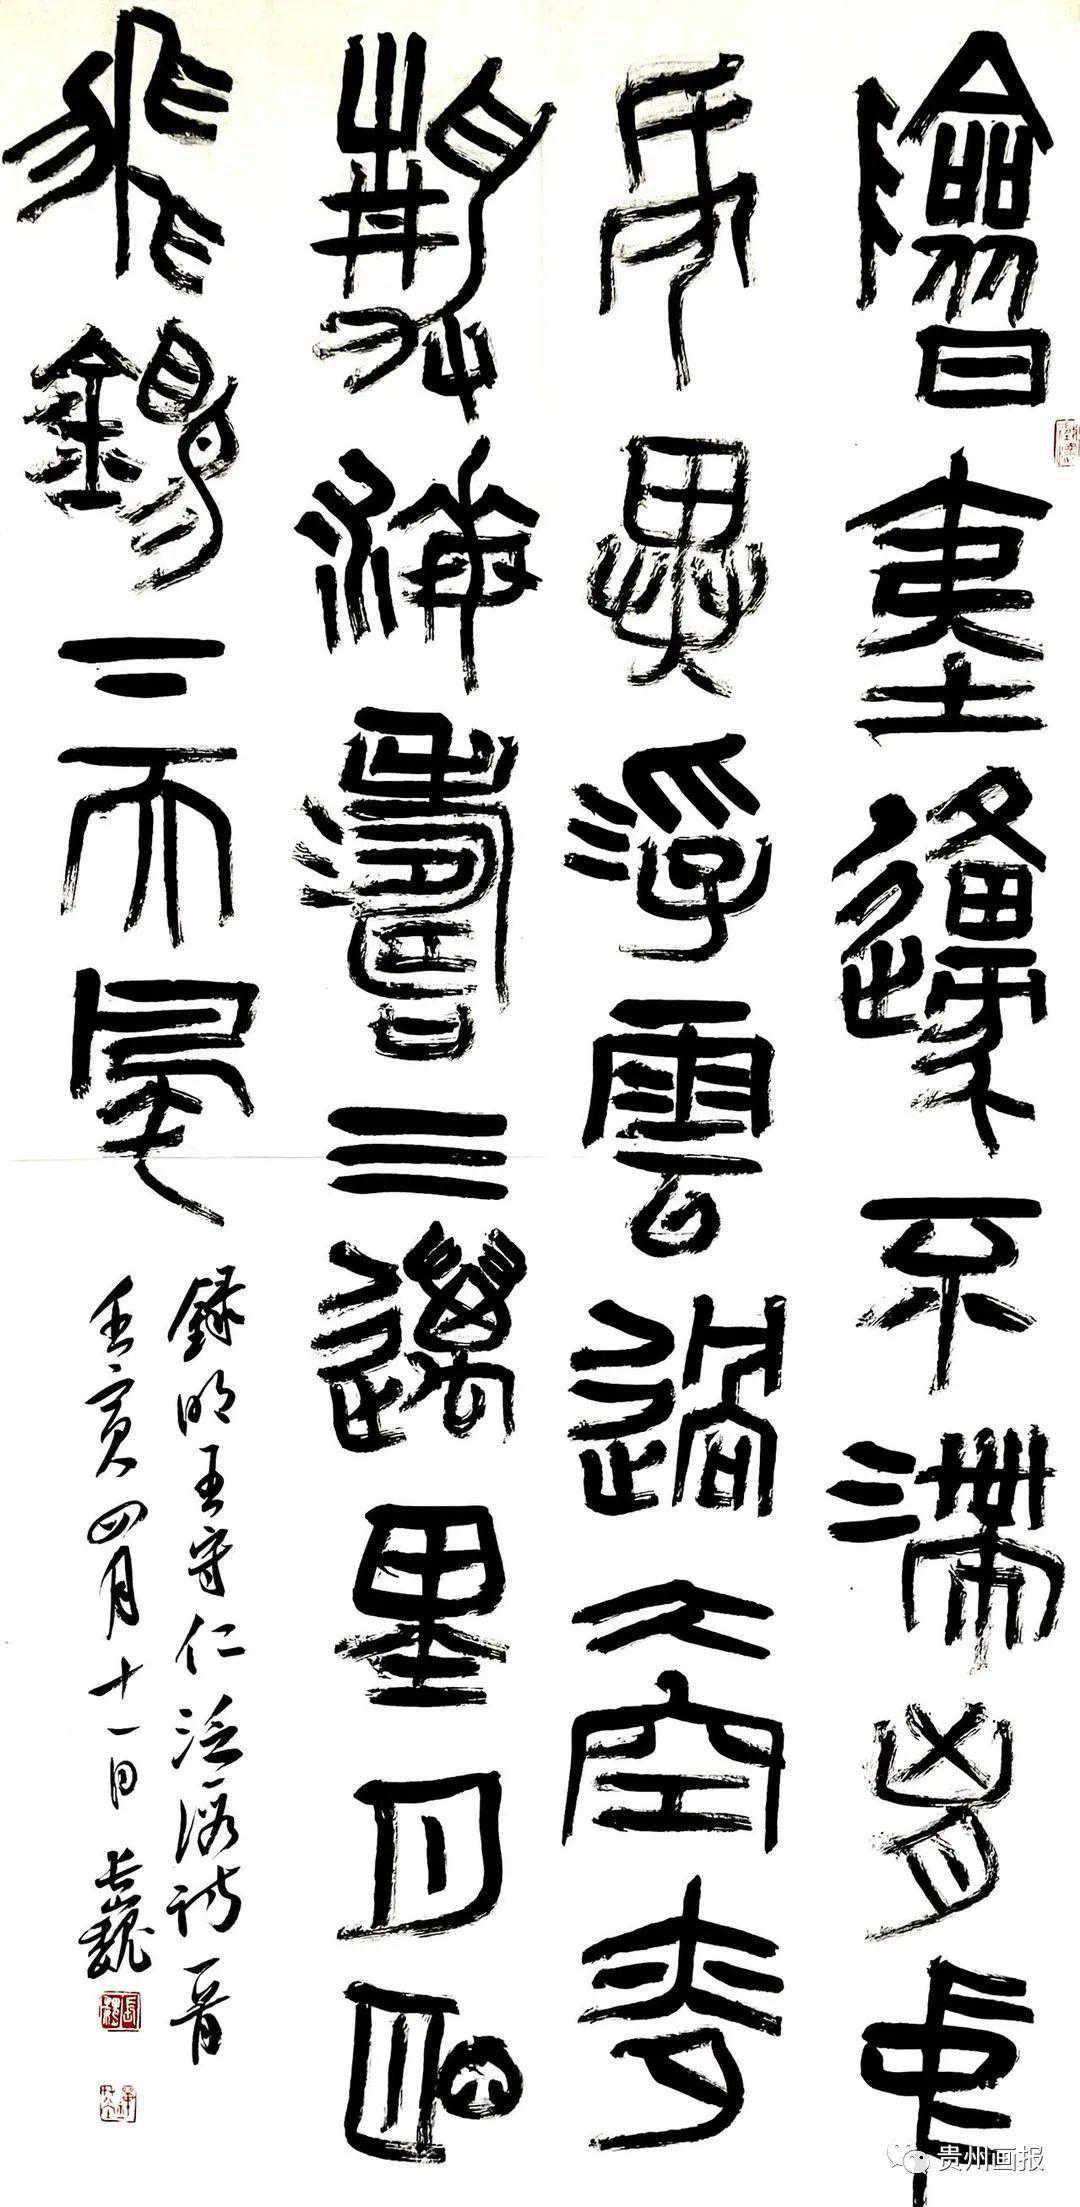 險夷邍不滯胸中
何異浮雲過大空夜
靜海濤三邁里月明
飛錫下天風
録明王守仁泛海詩一首
壬寅四月十一日長巍
贵州画报